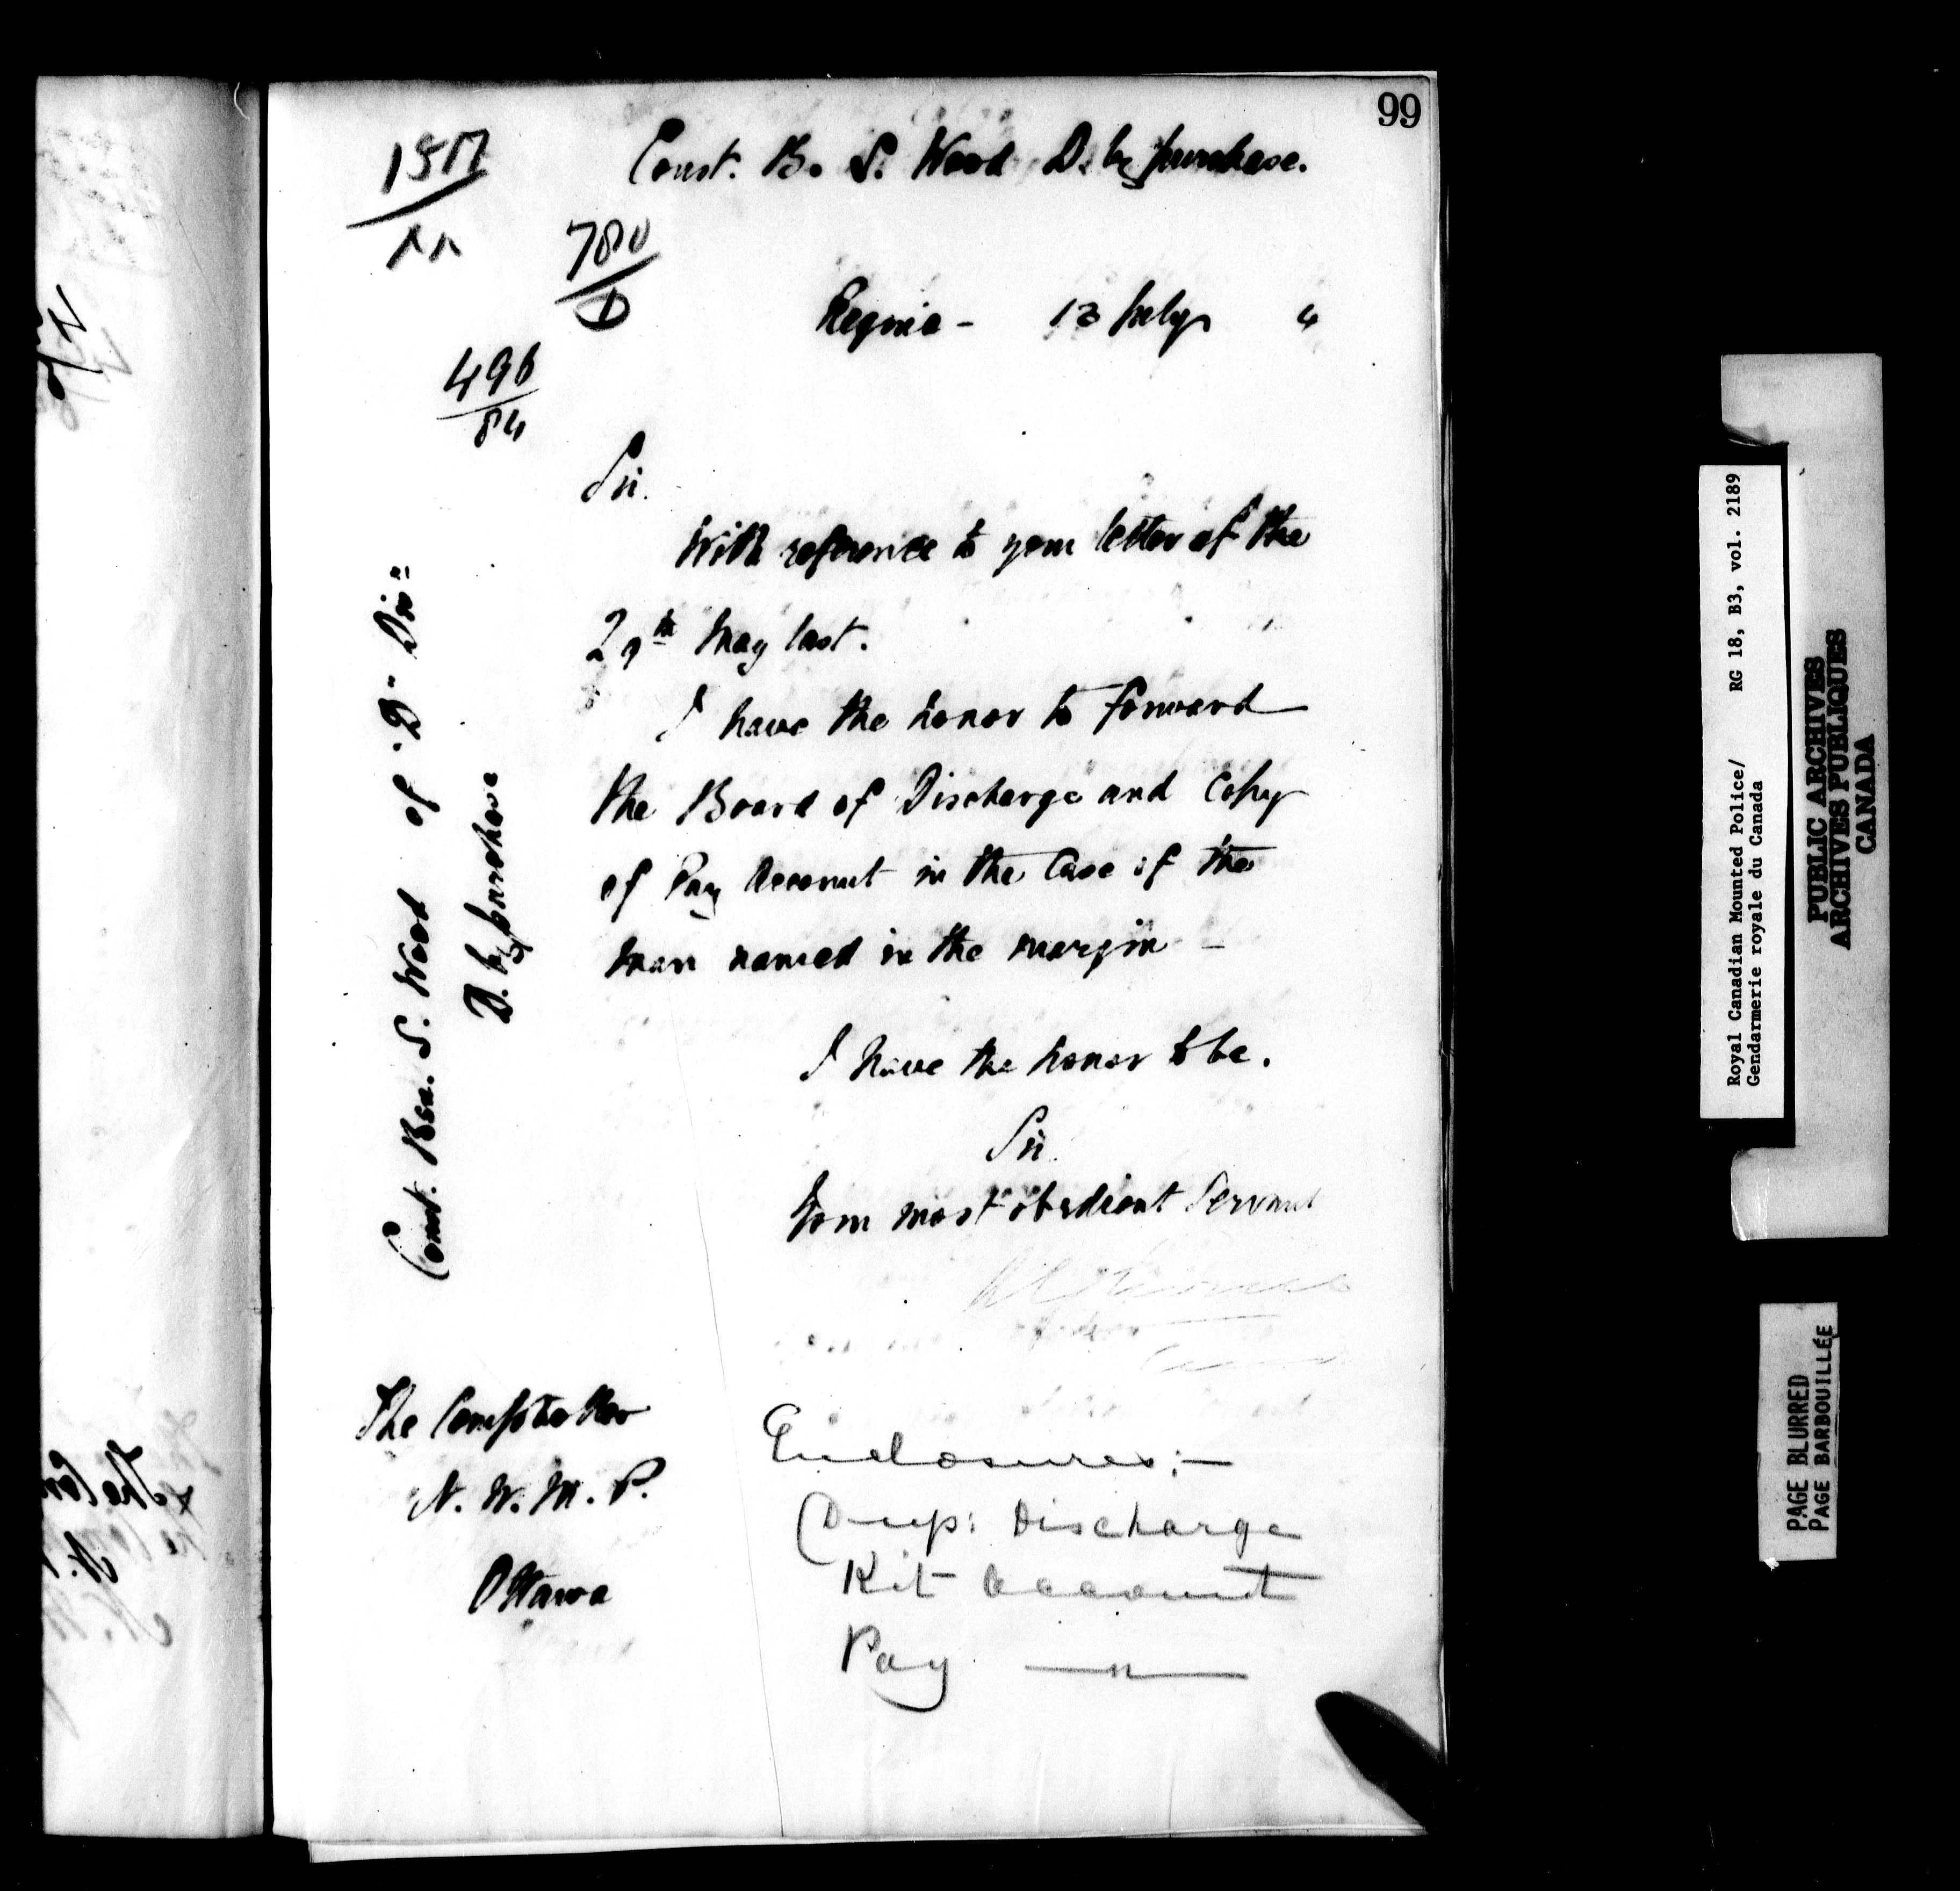 99
Const. B. S. Wood D. by purchase.
780
D
Regina - 13 July 4
496
84
Sir.
With reference to your letter of the
29th May last.
I have the honor to forward
the Board of Discharge and Copy
of Pay Account in the Case of the
man named in the margin -
Const. Ben. S. Wood of "B" Divn
D. by purchase
I have the honor to be.
Sir.
Your most obedient Servant
The Comptroller
N. W. M. P.
Ottawa
Enclosures:-
Dup: Discharge
Kit Account
Pay —"—
The Com
N.
Royal Canadian Mounted Police/ RG 18, B3, vol. 2189
Gendarmerie royale du Canada
PUBLIC ARCHIVES
ARCHIVES PUBLIQUES
CANADA
PAGE BLURRED
PAGE BARBOUILLÉE